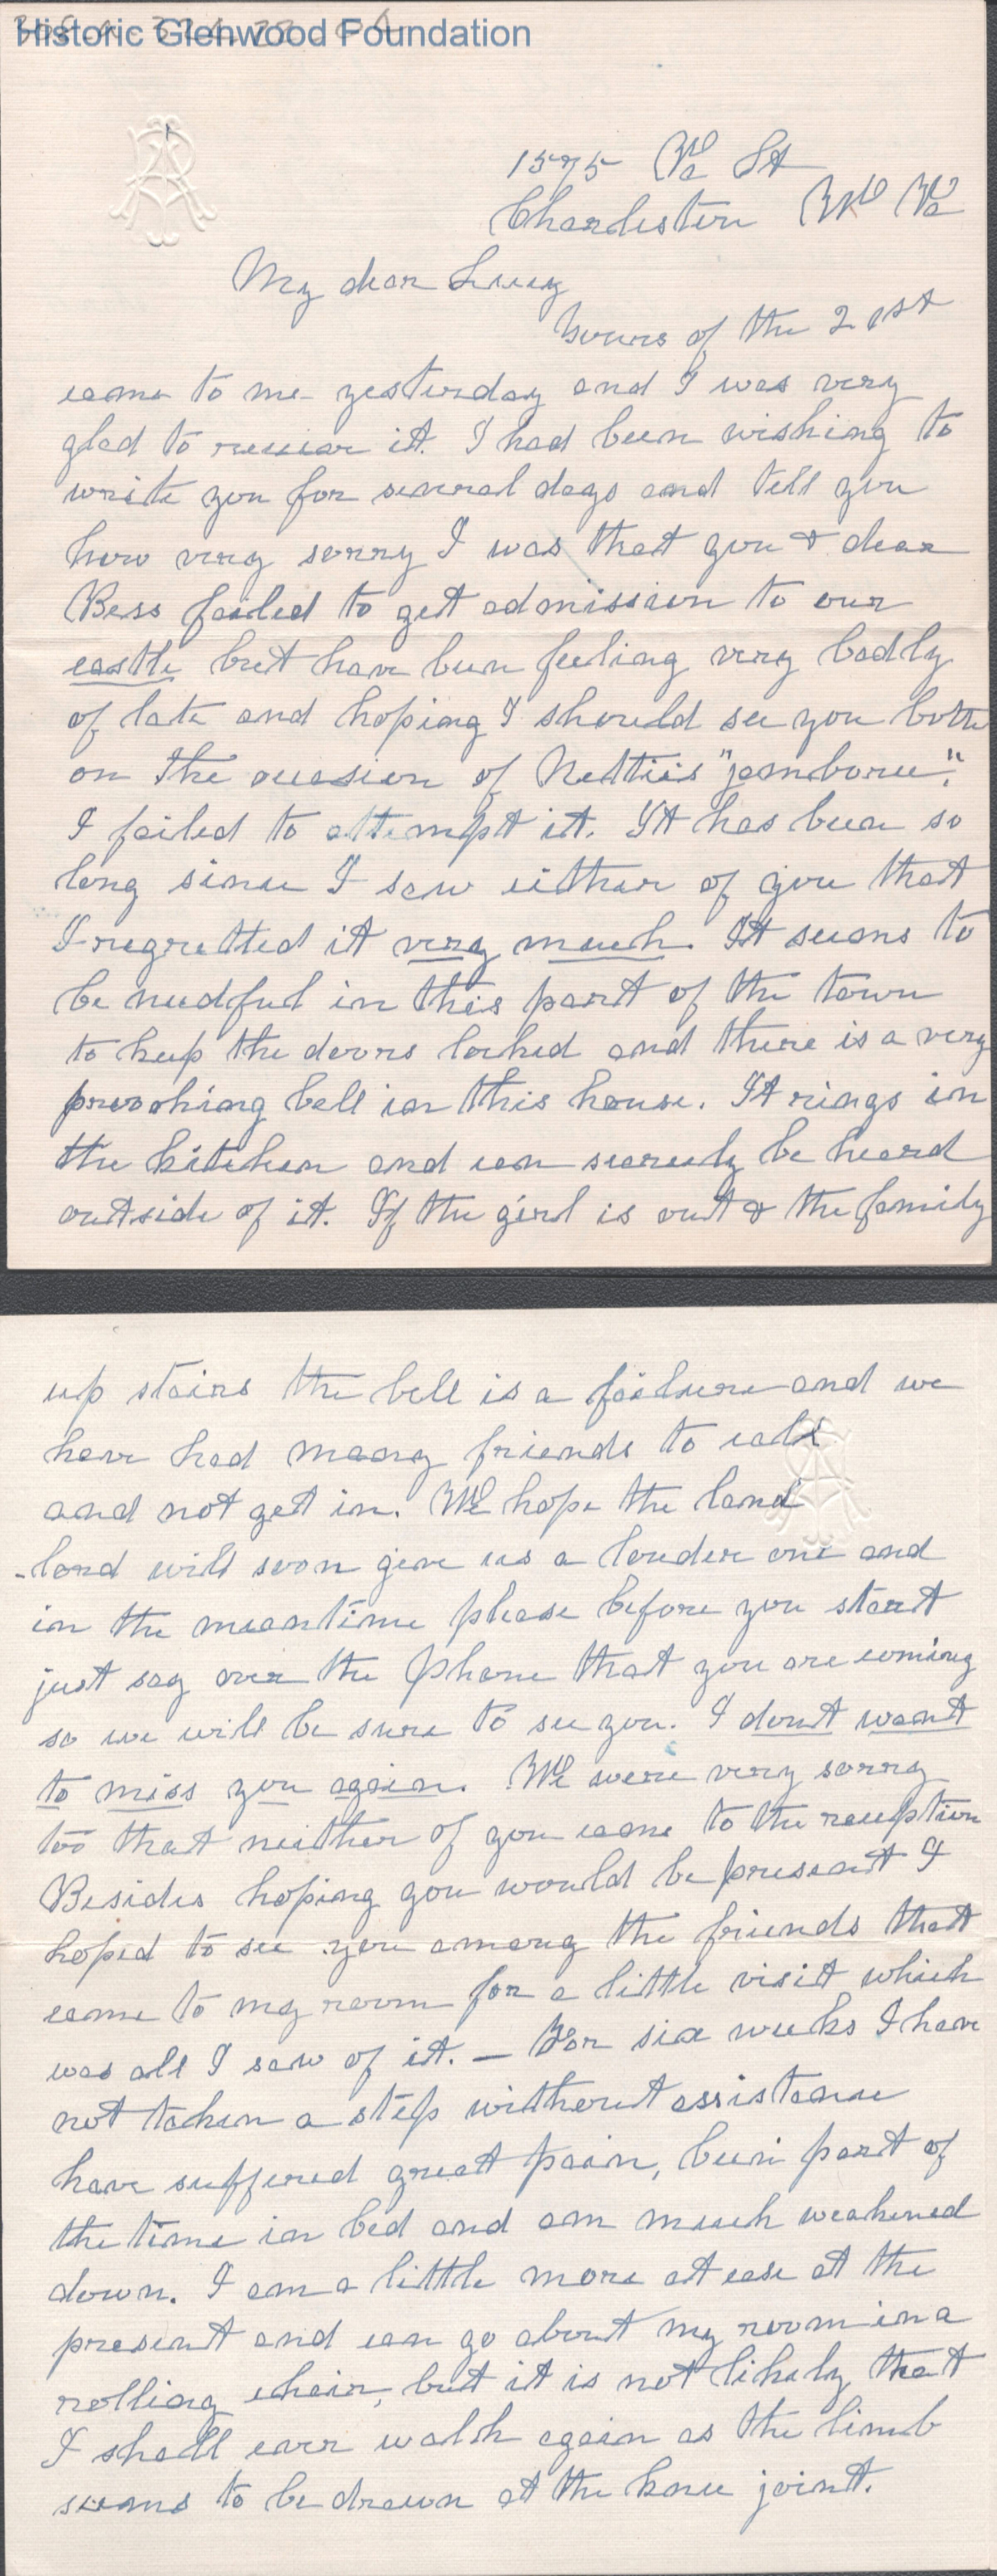 Historic Glenwood Foundation
1575 Va St
Charleston W Va
My dear Lucy
Yours of the 21st
came to me yesterday and I was very
glad to receive it. I had been wishing to
write you for several days and tell you
how very sorry I was that you & dear
Bess failed to get admission to our
castle but have been feeling very badly
of late and hoping I should see you both
on the occasion of Nettie's "jamboree".
I failed to attempt it. It has been so
long since I saw either of you that
I regretted it very much. It seems to
be needful in this part of the town
to keep the doors locked and there is a very
provoking bell in this house. It rings in
the kitchen and can scarcely be heard
outside of it. If the girl is out & the family
up stairs the bell is a failure and we
have had many friends to call
and not get in. We hope the land
-lord will soon give us a louder one and
in the meantime please before you start
just say over the Phone that you are coming
so we will be sure to see you. I dont want
to miss you again. We were very sorry
too that neither of you came to the reception
Besides hoping you would be present I
hoped to see you among the friends that
came to my room for a little visit which
was all I saw of it. — For six weeks I have
not taken a step without assistance
have suffered great pain, been part of
the time in bed and am much weakened
down. I am a little more at ease at the
present and can go about my room in a
rolling chair, but it is not likely that
I shall ever walk again as the limb
seems to be drawn at the knee joint.